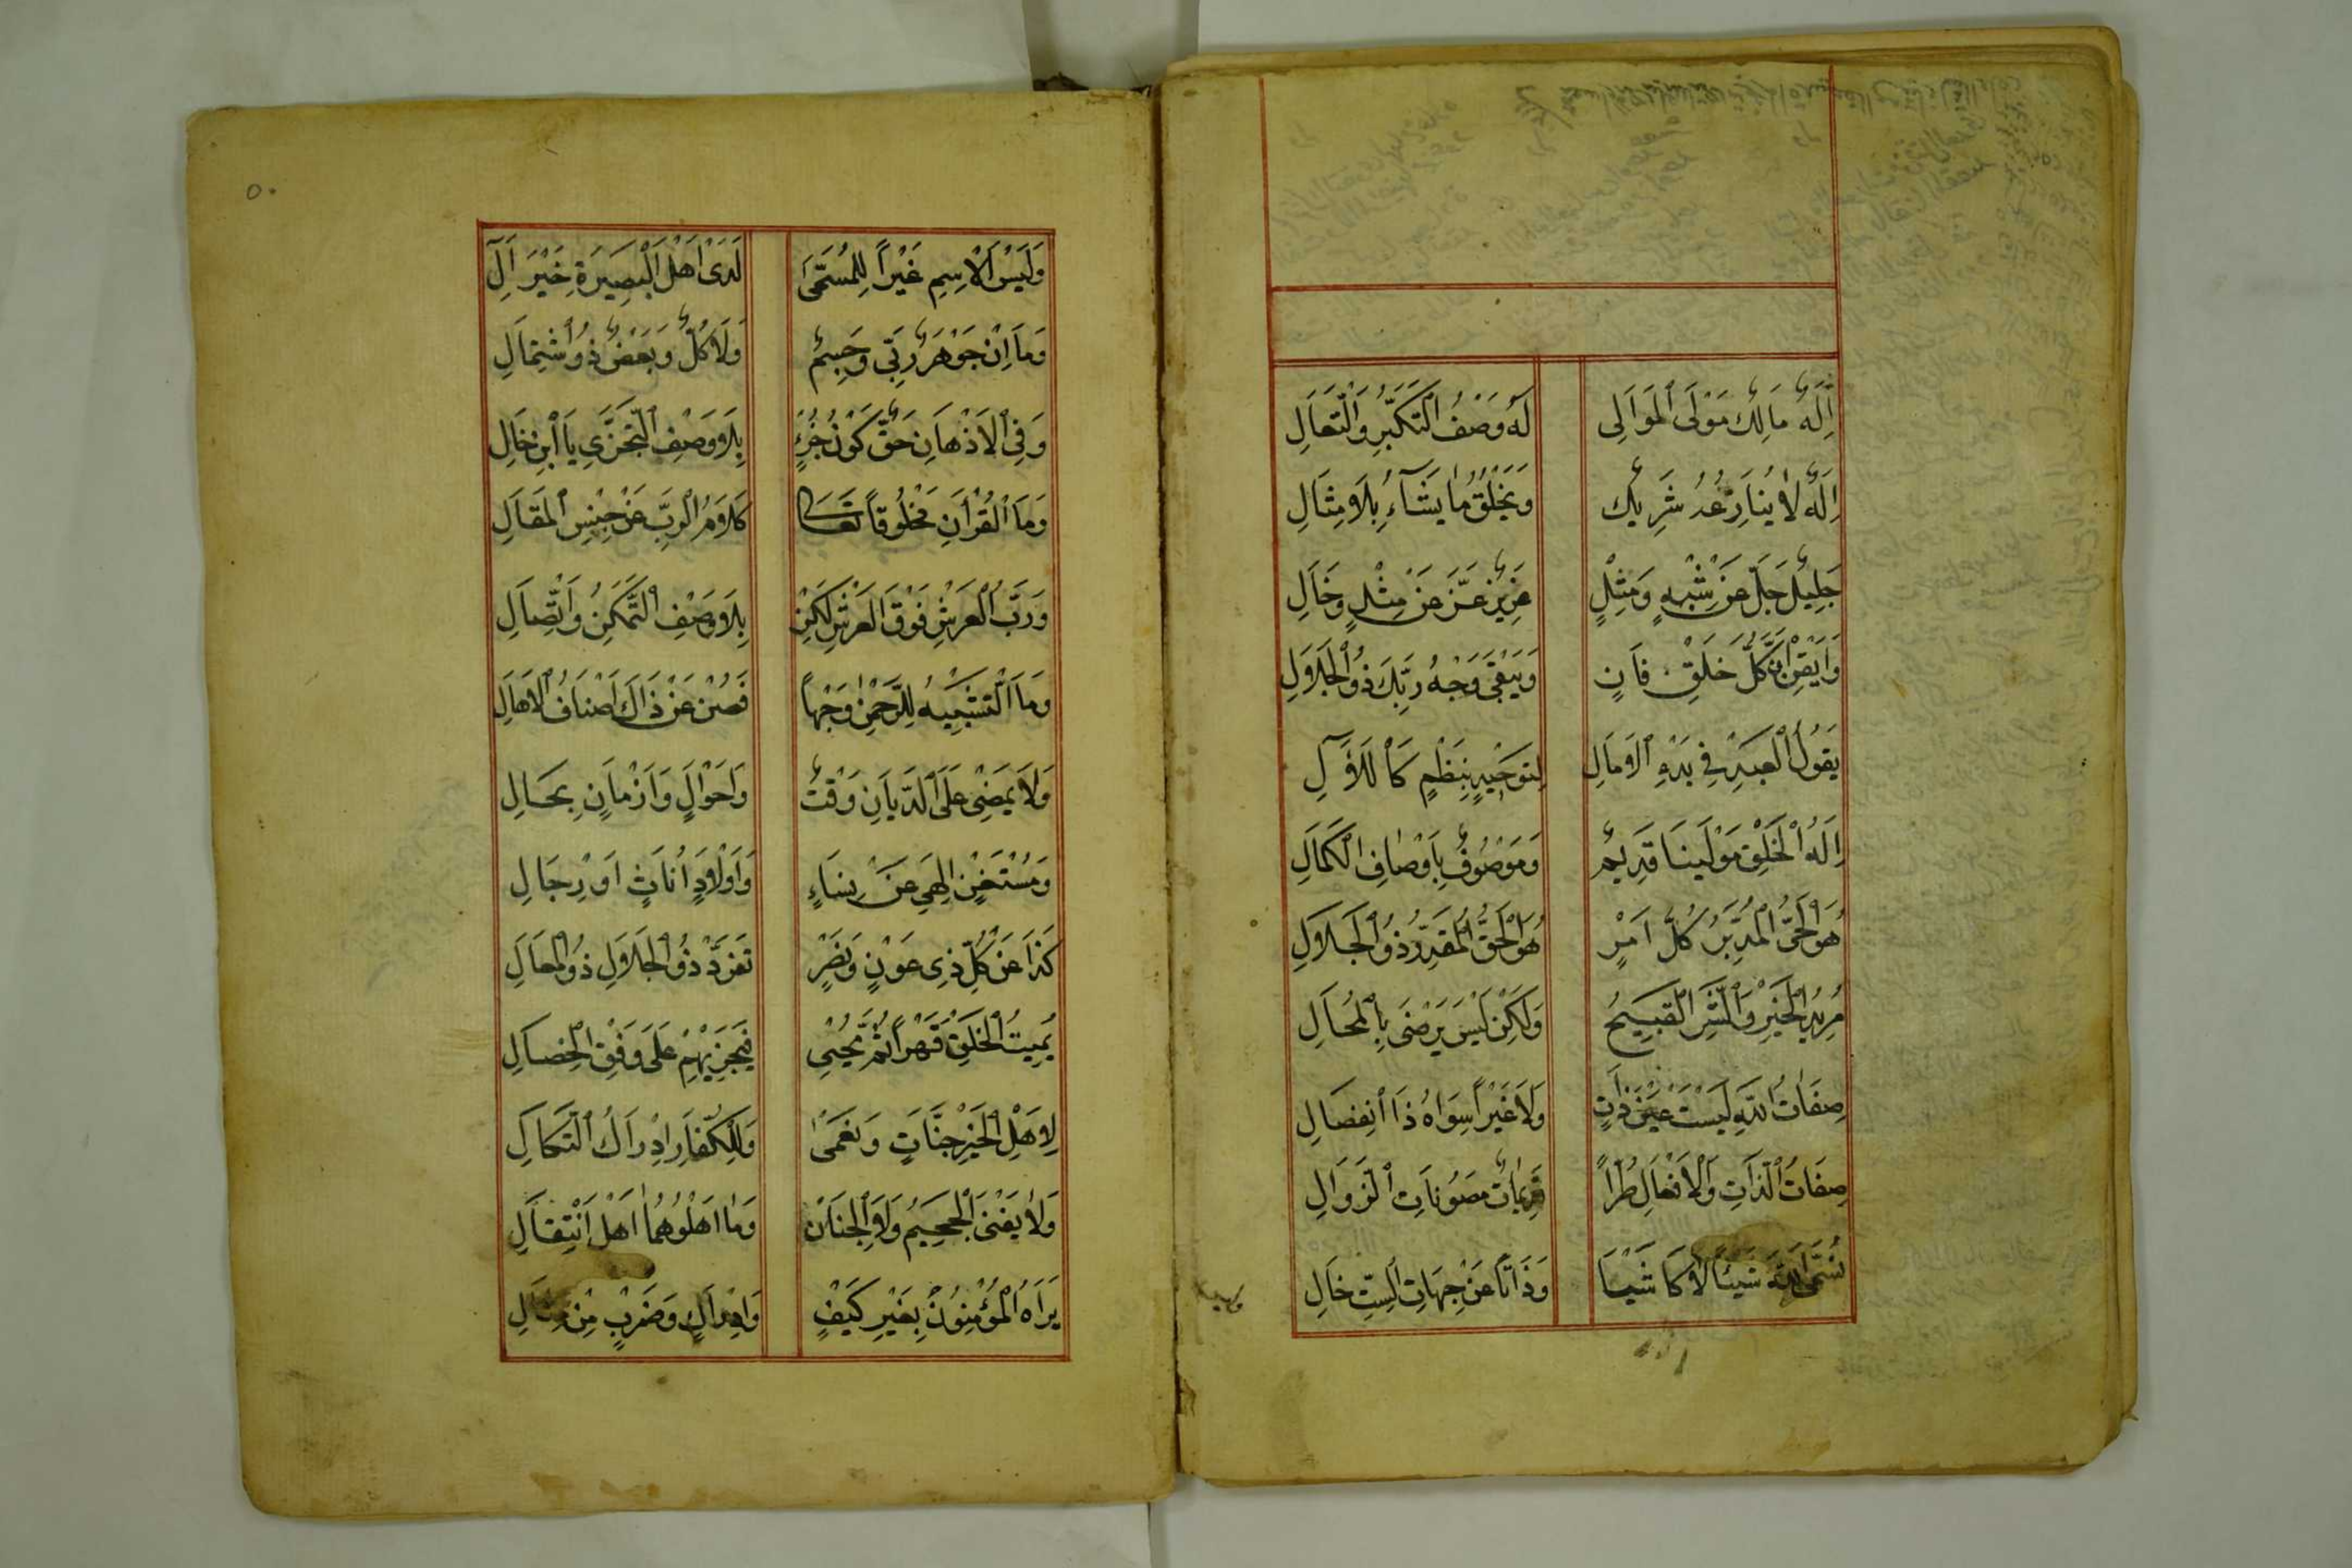 اِلٰهٌ مَالِكٌ مَوْلَى الْمَوَالِى لَهُ وَصْفُ التَّكَبُّرِ وَالتَّعَالِ
اِلٰهٌ لَا يُنَازِعُهُ شَرِيكٌ وَيَخْلُقُ مَا يَشَآءُ بِلَا مِثَالِ
جَلِيلٌ جَلَّ عَنْ شِبْهٍ وَمِثْلٍ عَزِيزٌ عَزَّ عَنْ مِثْلٍ وَخَالِ
وَاَيْقِنْ اَنَّ كُلَّ خَلْقٍ فَانٍ وَيَبْقَى وَجْهُ رَبِّكَ ذُو الْجَلَالِ
يَقُولُ الْعَبْدُ فِي بَدْءِ الْاَمَالِ لِتَوْحِيدٍ بِنَظْمٍ كَاللَّاٰلِ
اِلٰهُ الْخَلْقِ مَوْلٰينَا قَدِيمٌ وَمَوْصُوفٌ بِاَوْصَافِ الْكَمَالِ
هُوَ الْحَىُّ الْمُدَبِّرُ كُلَّ اَمْرٍ هُوَ الْحَقُّ الْمُقَدِّرُ ذُو الْجَلَالِ
مُرِيدُ الْخَيْرِ وَالشَّرِّ الْقَبِيحِ وَلٰكِنْ لَيْسَ يَرْضَى بِالْمُحَالِ
صِفَاتُ اللّٰهِ لَيْسَتْ عَيْنَ ذَاتٍ وَلَا غَيْرًا سِوَاهُ ذَا انْفِصَالِ
صِفَاتُ الذَّاتِ وَالْاَفْعَالِ طُرًّا قَدِيمَاتٌ مَصُونَاتِ الزَّوَالِ
نُسَمِّى اللّٰهَ شَيْئًا لَا كَاشْيَا وَذَاتًا عَنْ جِهَاتِ السِّتِّ خَالِ
وليس
٥٠
وَلَيْسَ الْاِسْمِ غَيْرًا لِلْمُسَمَّى لَدَى اَهْلِ الْبَصِيرَةِ خَيْرَ اٰلِ
وَمَا اِنْ جَوْهَرٌ رَبِّى وَجِسْمٌ وَلَا كُلٌّ وَبَعْضٌ ذُو اشْتِمَالِ
وَفِى الْاَذْهَانِ حَقٌّ كَوْنُ جُزْءٍ بِلَا وَصْفِ التَّجَزِّى يَا ابْنِ خَالِ
وَمَا الْقُرْاٰنِ مَخْلُوقًا تَعَالٰى كَلَامُ الرَّبِّ عَنْ جِنْسِ الْمَقَالِ
وَرَبُّ الْعَرْشِ فَوْقَ الْعَرْشِ لٰكِنْ بِلَا وَصْفِ التَّمَكُّنِ وَاتِّصَالِ
وَمَا التَّشْبِيهُ لِلرَّحْمٰنِ وَجْهًا فَصُنْ عَنْ ذَاكَ اَصْنَافُ الْاَهَالِ
وَلَا يَمْضِى عَلَى الدَّيَّانِ وَقْتٌ وَاَحْوَالٍ وَاَزْمَانٍ بِحَالِ
وَمُسْتَغْنٍ اِلٰهِى عَنْ نِسَاءٍ وَاَوْلَادٍ اُنَاثٍ اَوْ رِجَالِ
كَذَا عَنْ كُلِّ ذِى عَوْنٍ وَنَصْرٍ تَفَرَّدَ ذُو الْجَلَالِ ذُو الْمَعَالِ
يُمِيتُ الْخَلْقَ قَهْرًا ثُمَّ يُحْيِى فَيَجْزِيهِمْ عَلَى وَفْقِ الْخِصَالِ
لِاَهْلِ الْخَيْرِ جَنَّاتٍ وَنُعْمَى وَلِلْكُفَّارِ اِدْرَاكُ النَّكَالِ
وَلَا يَفْنَى الْجَحِيمُ وَلَا الْجِنَانُ وَمَا اَهْلُوهُمَا اَهْلُ انْتِقَالِ
يَرَاهُ الْمُؤْمِنُونَ بِغَيْرِ كَيْفٍ وَاِدْرَاكٍ وَضَرْبٍ مِنْ مِثَالِ